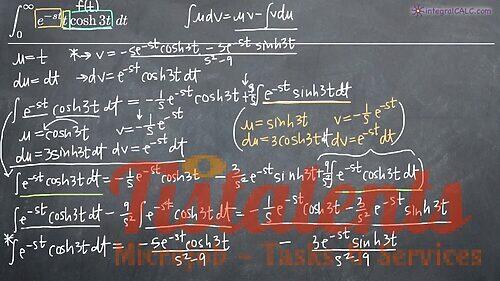 f(t)
∫₀^∞ e^-st t cosh 3t dt    ∫udv = uv - ∫vdu
integralCALC.com
u = t    * → v = -se^-st cosh3t - 3e^-st sinh3t / s²-9
du = dt → dv = e^-st cosh3t dt
∫e^-st cosh3t dt = -1/s e^-st cosh3t + 3/s ∫e^-st sinh3t dt
u = cosh3t    v = -1/s e^-st
du = 3sinh3t dt    dv = e^-st dt
u = sinh3t    v = -1/s e^-st
du = 3cosh3t dt    dv = e^-st dt
∫e^-st cosh3t dt = -1/s e^-st cosh3t - 3/s² e^-st sinh3t + 9/s² ∫e^-st cosh3t dt
∫e^-st cosh3t dt - 9/s² ∫e^-st cosh3t dt = -1/s e^-st cosh3t - 3/s² e^-st sinh3t
* ∫e^-st cosh3t dt = -se^-st cosh3t / s²-9 - 3e^-st sinh3t / s²-9